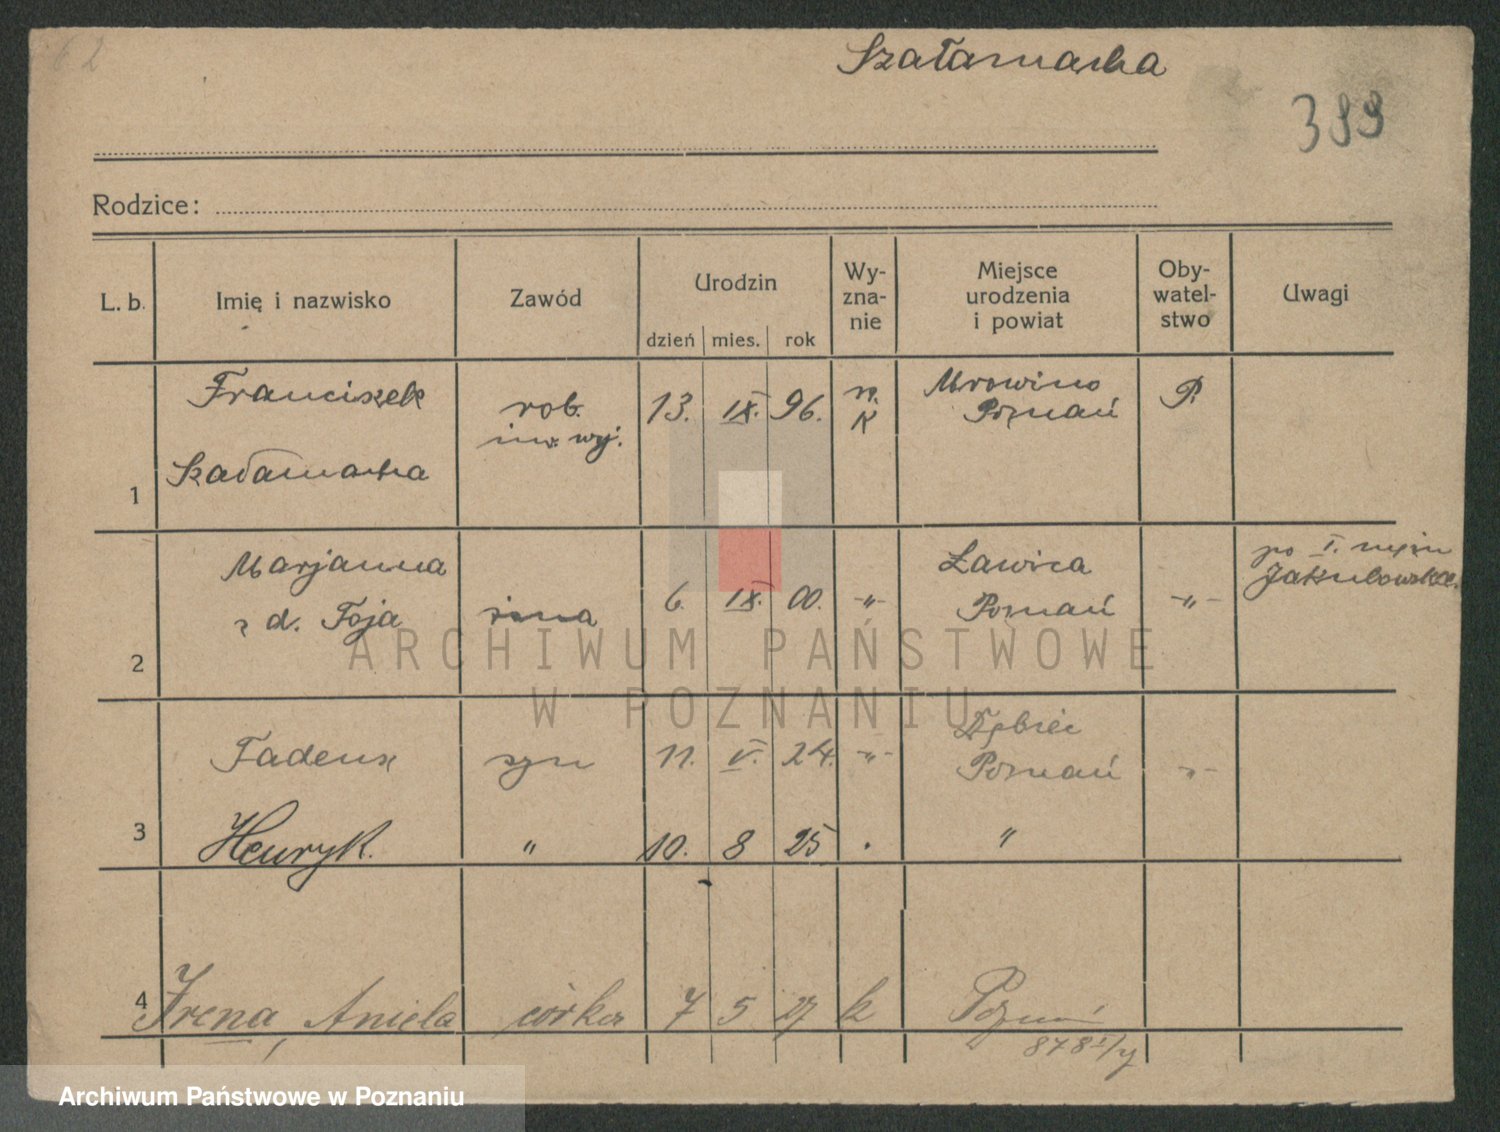 62
Szałamacha
399
Rodzice:
L. b. Imię i nazwisko Zawód Urodzin dzień mies. rok Wy-zna-nie Miejsce urodzenia i powiat Oby-watel-stwo Uwagi
1 Franciszek Szałamacha rob. inw. wyj. 13. IX. 96. r. K Mrowino Poznań P.
2 Marjanna z d. Foja żona 6. IX. 00. -"- Ławica Poznań -"- po I. mężu Jakubowska.
3 Tadeusz syn 11. V. 24. -"- Dębiec Poznań -"-
Henryk. " 10. 8 25 . "
4 Irena, Aniela córka 7 5 27 k Poznań
ARCHIWUM PAŃSTWOWE
W POZNANIU
Archiwum Państwowe w Poznaniu